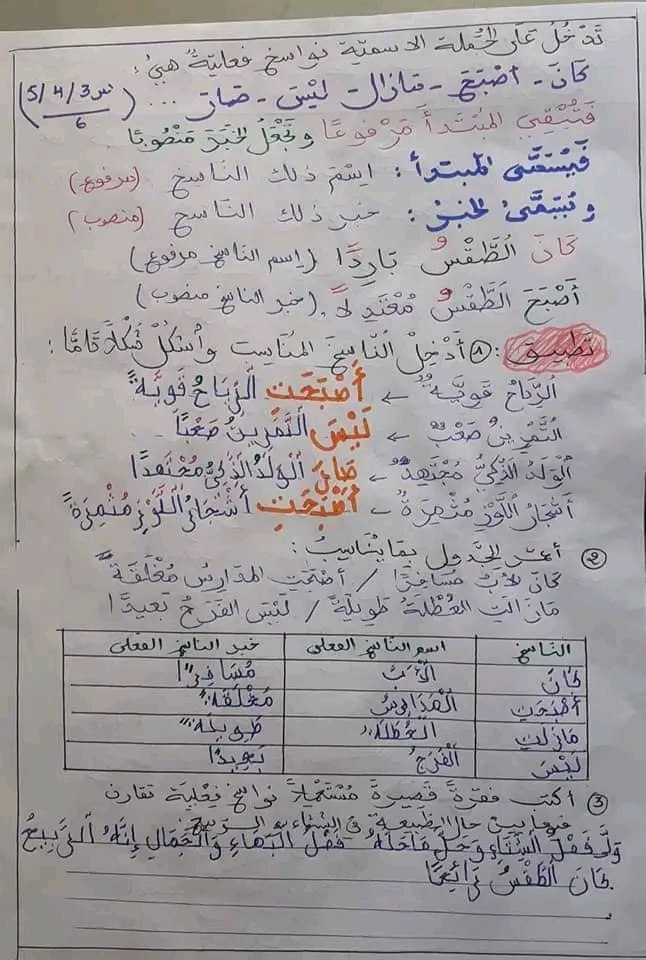 تَدْخُلُ عَلَى الجُمْلَةِ الاسميّة نواسخ فعليّةُ هيَ:
كَانَ - أَصْبَحَ - مَازَالَ - لَيْسَ - صَارَ ... (س3/4/5/6)
فَتُبْقِي المُبْتَدَأَ مَرْفُوعًا وَتَجْعَلُ الخَبَرَ مَنْصُوبًا
فَيُسَمَّى المبتدأ: اِسْمَ ذلك النَّاسخِ (مرفوع)
ويُسَمَّى الخبرُ: خبر ذلك النّاسخ (منصوب)
كَانَ الطَّقْسُ بَارِدًا (اِسم الناسخ مرفوع)
أَصْبَحَ الطَّقْسُ مُعْتَدِلاً (خبر الناسخ منصوب)
تطبيق: ① أَدْخِلْ النَّاسِخَ المُنَاسِبَ وأشكلْ شَكْلاً تَامًّا:
الرِّيَاحُ قَوِيَّةٌ ← أَصْبَحَتِ الرِّيَاحُ قَوِيَّةً
التَّمْرِينُ صَعْبٌ ← لَيْسَ التَّمْرِينُ صَعْبًا
الوَلَدُ الذَّكِيُّ مُجْتَهِدٌ ← صَارَ الوَلَدُ الذَّكِيُّ مُجْتَهِدًا
أَشْجَارُ اللَّوْزِ مُثْمِرَةٌ ← أَصْبَحَتِ أَشْجَارُ اللَّوْزِ مُثْمِرَةً
② أعمر الجدول بما يناسبُ:
كَانَ الأبُ مُسَافِرًا / أَصْبَحَتِ المَدَارِسُ مُغْلَقَةً
مَازَالَتِ العُطْلَةُ طَوِيلَةً / لَيْسَ الفَرَجُ بَعِيدًا
النّاسخ | اسم النّاسخ الفعلي | خبر الناسخ الفعلي
كَانَ | الأَبُ | مُسَافِرًا
أَصْبَحَتِ | المَدَارِسُ | مُغْلَقَةً
مَازَالَتِ | العُطْلَةُ | طَوِيلَةً
لَيْسَ | الْفَرَجُ | بَعِيدًا
③ أكتب فقرةً قصيرةً مُسْتَعْمِلاً نواسخ فعليّة تقارن
فيها بين حال الطبيعة في الشتاء و الرّبيع
وَلَّى فَصْلُ الشِّتَاءِ وَحَلَّ مَحَلَّهُ فَصْلُ البَهَاءِ وَالْجَمَالِ إِنَّهُ الرَّبِيعُ
كَانَ الطَّقْسُ رَائِعًا